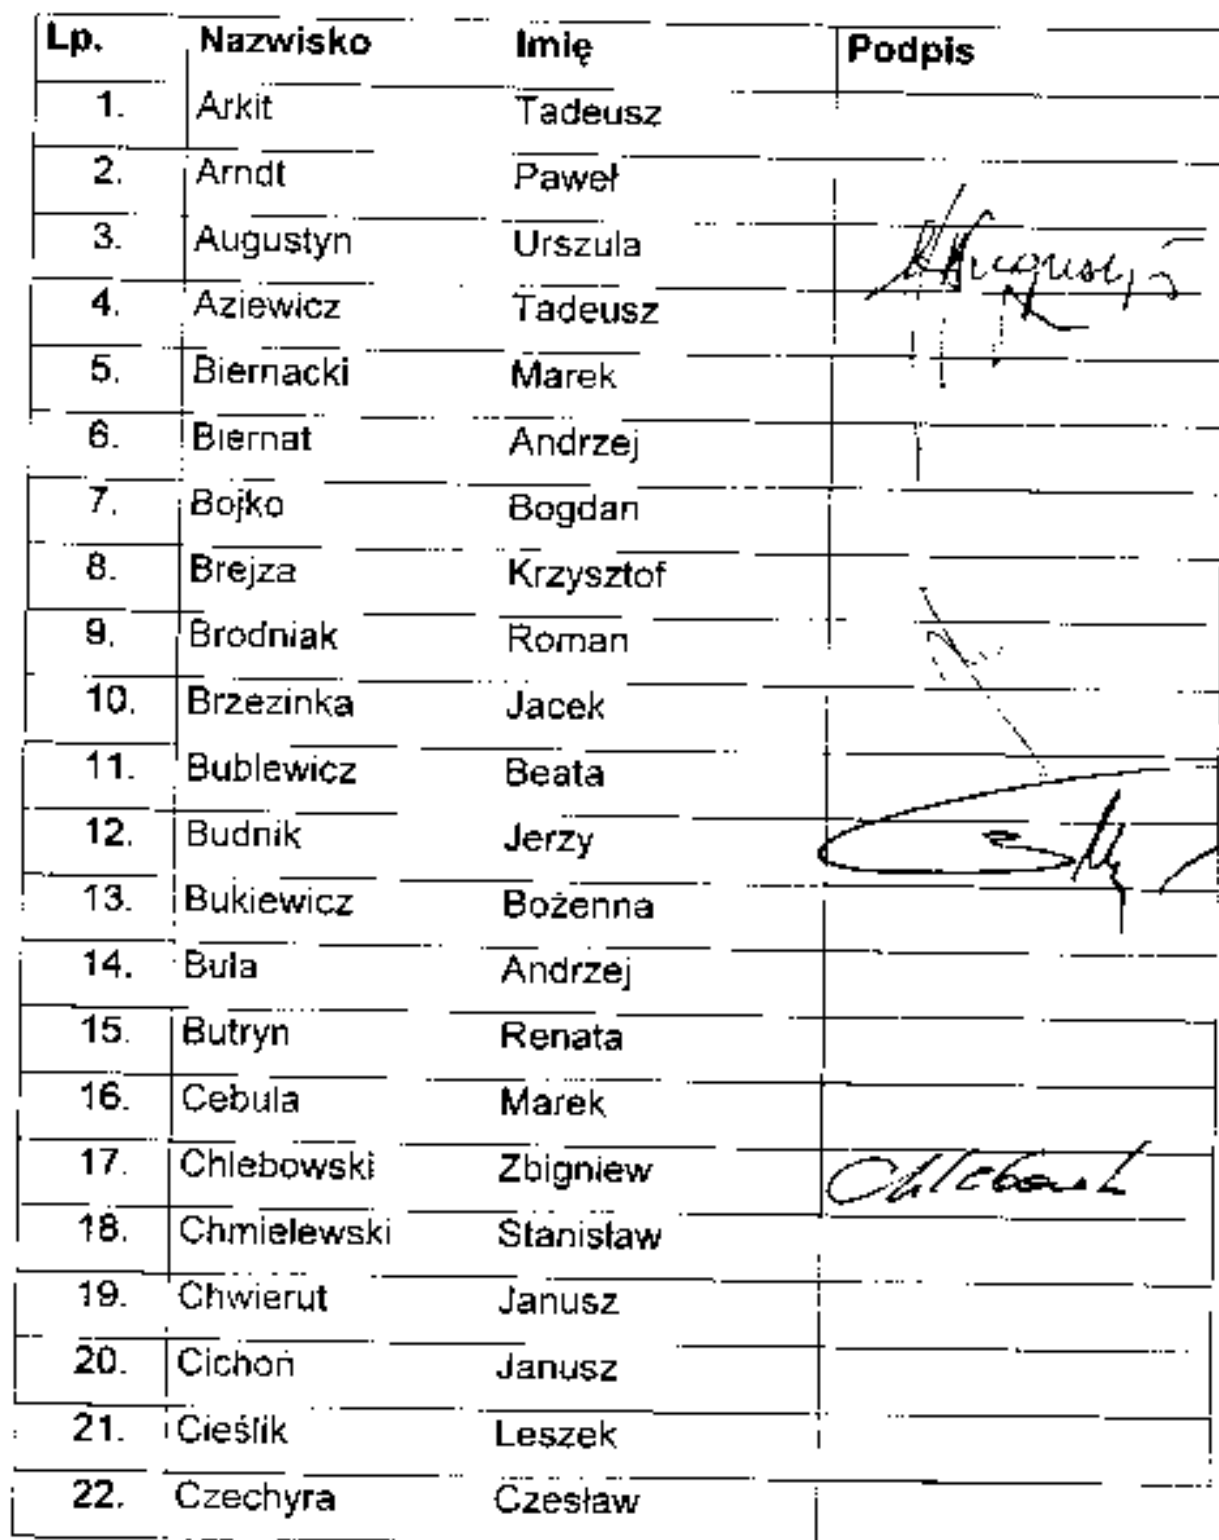 Lp. Nazwisko Imię Podpis
1. Arkit Tadeusz
2. Arndt Paweł
3. Augustyn Urszula Augustyn
4. Aziewicz Tadeusz
5. Biernacki Marek
6. Biernat Andrzej
7. Bojko Bogdan
8. Brejza Krzysztof
9. Brodniak Roman
10. Brzezinka Jacek
11. Bublewicz Beata
12. Budnik Jerzy
13. Bukiewicz Bożenna
14. Buła Andrzej
15. Butryn Renata
16. Cebula Marek
17. Chlebowski Zbigniew
18. Chmielewski Stanisław
19. Chwierut Janusz
20. Cichoń Janusz
21. Cieślik Leszek
22. Czechyra Czesław